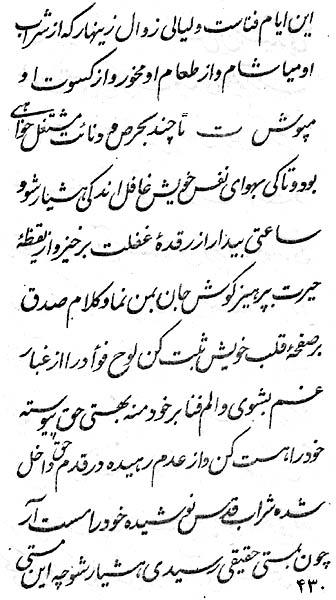 این ایام فناست و لیالی زوال زینهار که از شراب
او میاشام و از طعام او مخور و از کسوت او
مپوش ت تا چند بحرص و دنائت مشتغل خواهی
بود و تا کی بهوای نفس خویش غافل اندکی هشیار شو و
ساعتی بیدار از رقدهٔ غفلت برخیز و از یقظهٔ
حیرت بپرهیز گوش جان بمن نما و کلام صدق
بر صفحهٔ قلب خویش ثبت کن لوح فؤاد را از غبار
غم بشوی و الم فنا بر خود منه بهستی حق پیوسته
خود را هست کن و از عدم رهیده در قدم حق داخل
شده شراب قدس نوشیده خود را مست آر
چون بهستی حقیقی رسیدی هشیار شو چه این مستی
۴۳۰